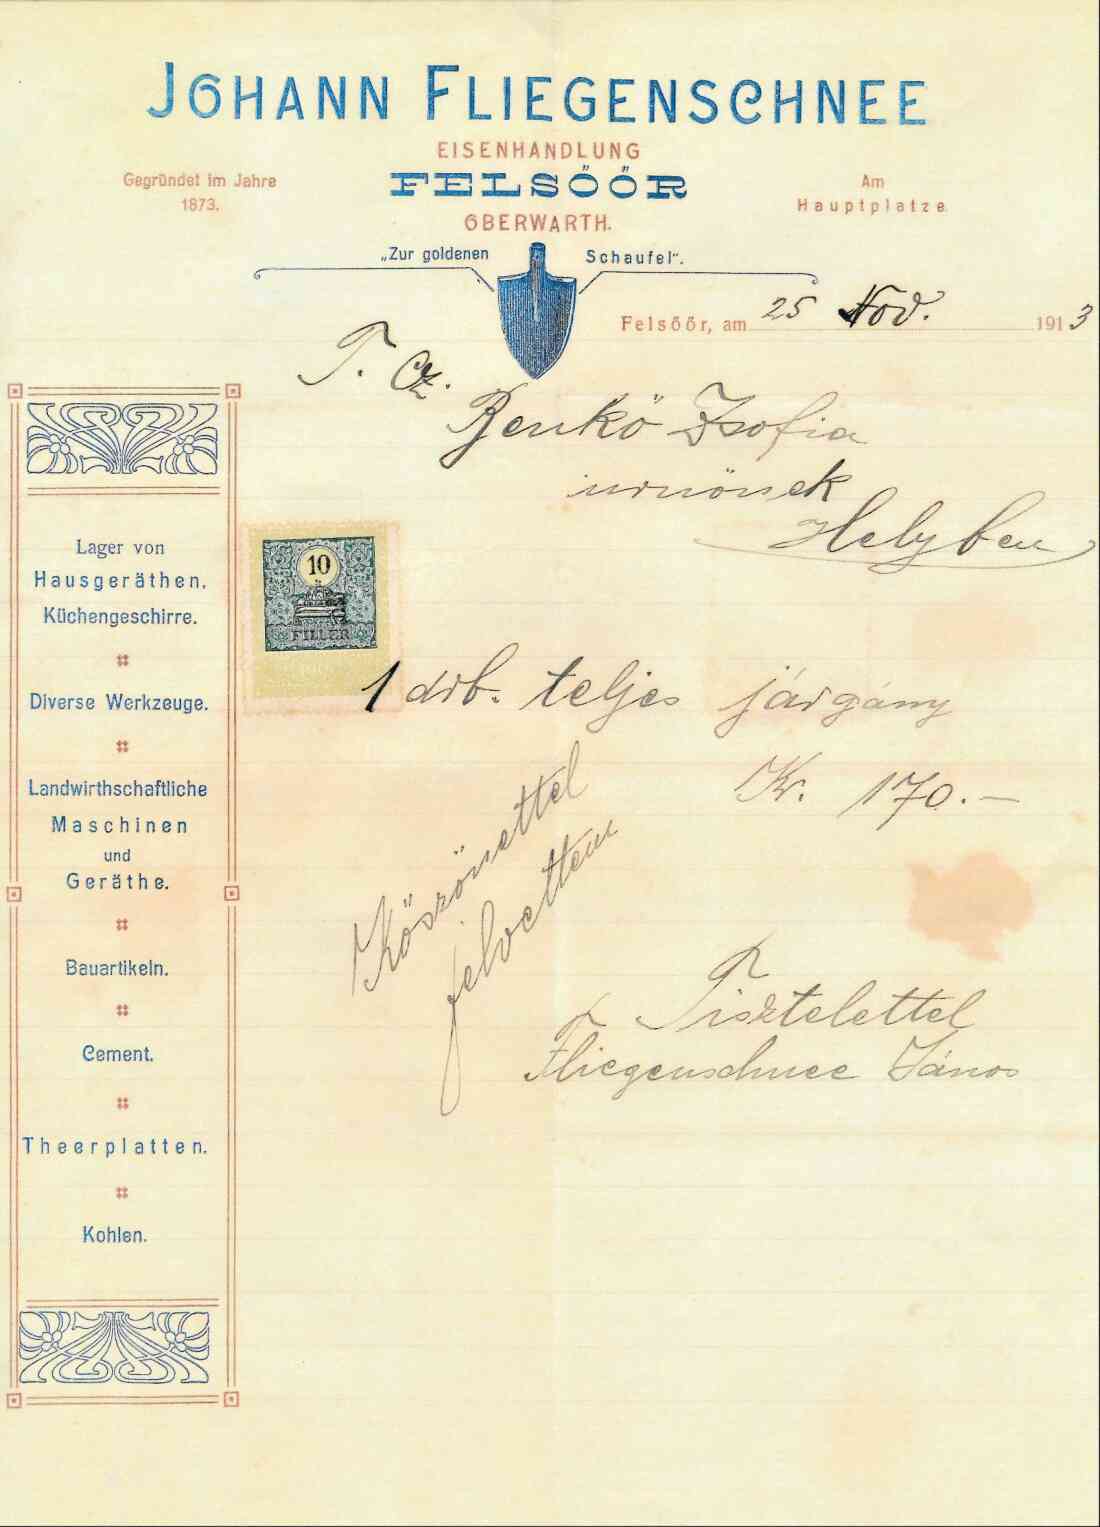 JOHANN FLIEGENSCHNEE
EISENHANDLUNG
Gegründet im Jahre
1873.
FELSŐŐR
Am
Hauptplatze.
OBERWARTH.
„Zur goldenen Schaufel".
Felsőőr, am 25 Nov. 1913
T. Cz.
Benkö Zsofia
urnönek
Helyben
Lager von
Hausgeräthen,
Küchengeschirre.
Diverse Werkzeuge.
Landwirthschaftliche
Maschinen
und
Geräthe.
Bauartikeln.
Cement.
Theerplatten.
Kohlen.
10
FILLÉR
1 drb. teljes járgány
Kr. 170.—
Köszönettel
felvettem
Tisztelettel
Fliegenschnee János